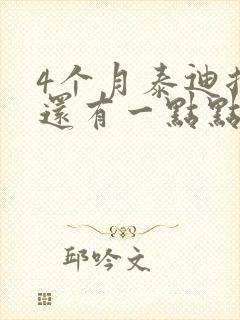 4个月泰迪
還有一點點
邱吟文